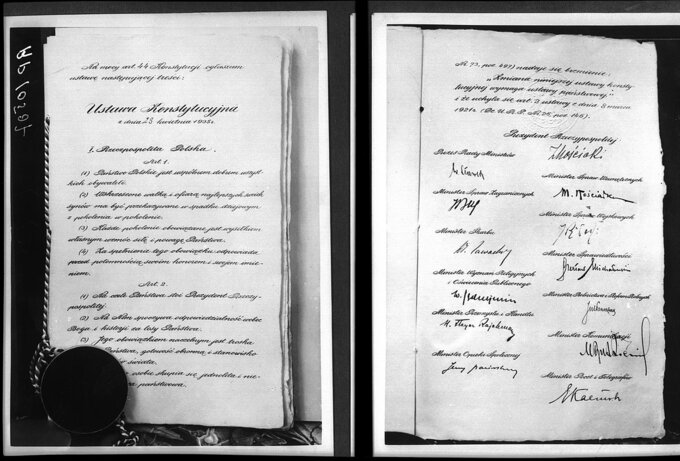 Na mocy art. 44 Konstytucji ogłaszam
ustawę następującej treści:
Ustawa Konstytucyjna
z dnia 23 kwietnia 1935r.
I. Rzeczpospolita Polska.
Art. 1.
(1) Państwo Polskie jest wspólnem dobrem wszyst-
kich obywateli.
(2) Wskrzeszone walką i ofiarą najlepszych swoich
synów ma być przekazywane w spadku dziejowym
z pokolenia w pokolenie.
(3) Każde pokolenie obowiązane jest wysiłkiem
własnym wzmóc siłę i powagę Państwa.
(4) Za spełnienie tego obowiązku odpowiada
przed potomnością swoim honorem i swojem imie-
niem.
Art. 2.
(1) Na czele Państwa stoi Prezydent Rzeczy-
pospolitej.
(2) Na Nim spoczywa odpowiedzialność wobec
Boga i historji za losy Państwa.
(3) Jego obowiązkiem naczelnym jest troska
Państwa, gotowość obronną i stanowisko
świata.
osobie skupia się jednolita i nie-
państwowa.
Nr. 73, poz. 497) nadaje się brzmienie:
"Zmiana niniejszej ustawy konsty-
tucyjnej wymaga ustawy państwowej"
i że uchyla się art. 2 ustawy z dnia 8 marca
Prezydent Rzeczypospolitej:
I Mościcki
Prezes Rady Ministrów
Minister Spraw Wewnętrznych
Minister Spraw Zagranicznych
M. Kościałkow
Minister Spraw Wojskowych
Minister Skarbu
Minister Sprawiedliwości
Minister Wyznań Religijnych
i Oświecenia Publicznego
Minister Rolnictwa i Reform Rolnych
Minister Przemysłu i Handlu
H. Floyar Rajchman
Minister Komunikacji
Minister Opieki Społecznej
Minister Poczt i Telegrafów
E Kaliński